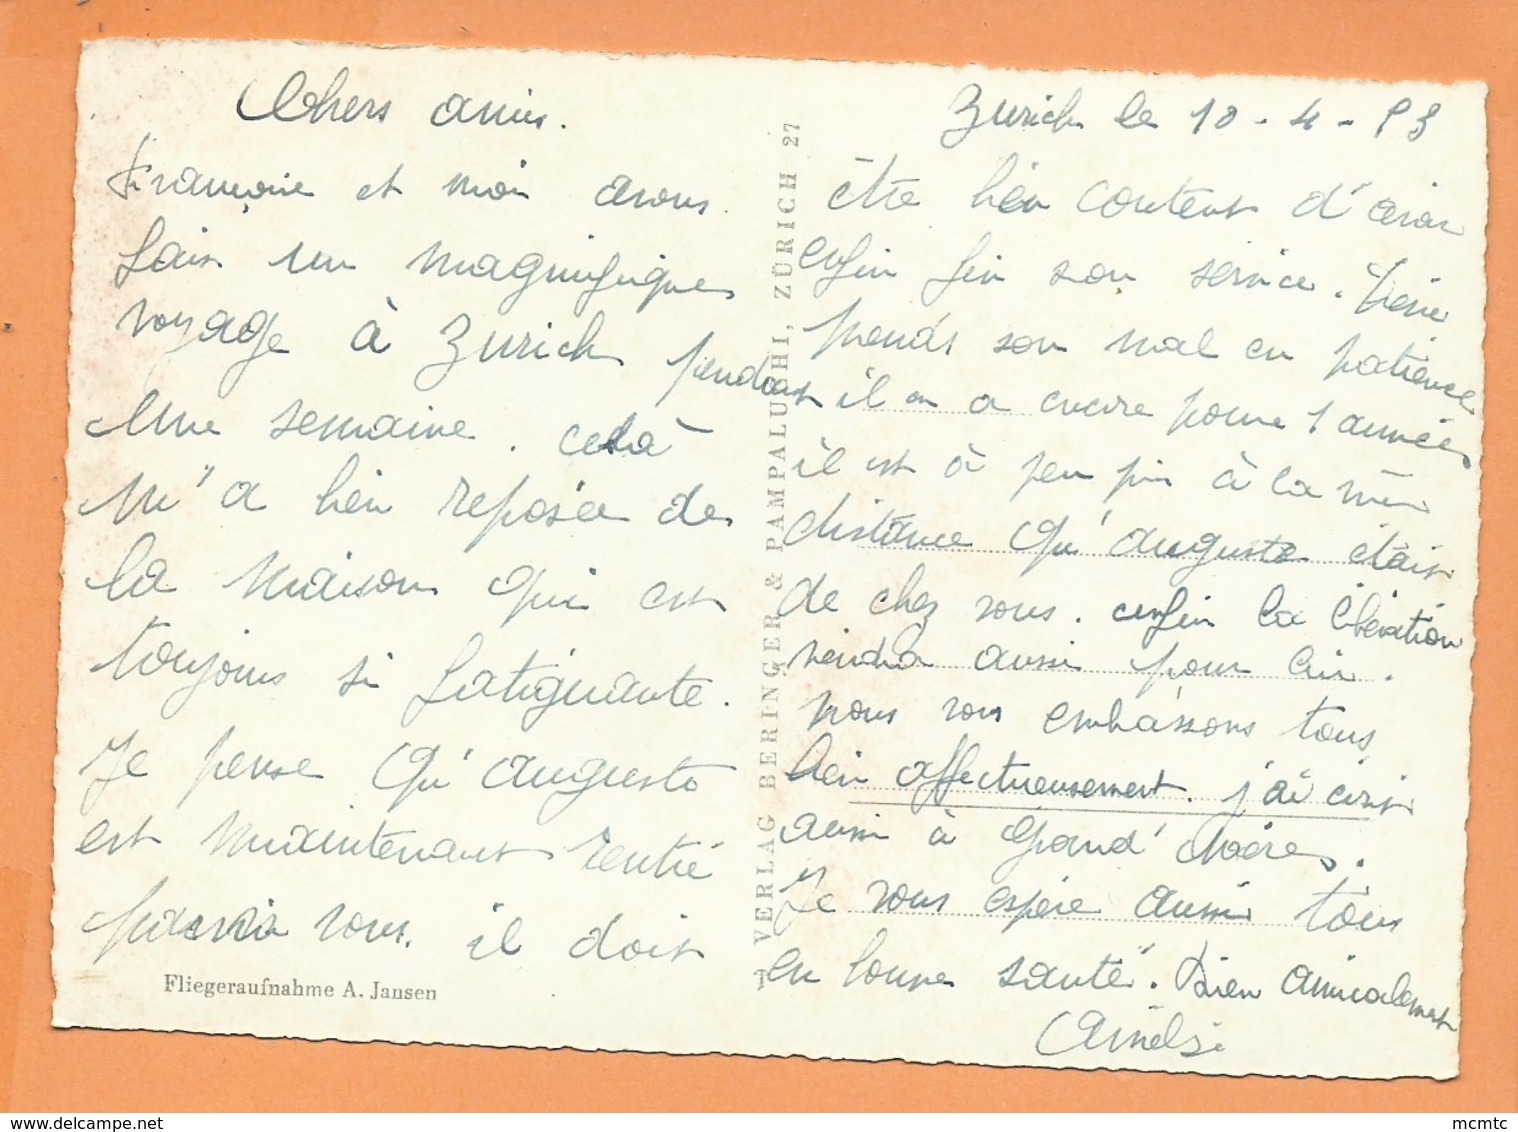 Chers amis.
Françoise et moi avons
fais un magnifique
voyage à Zurich pendant
une semaine. cela
m'a bien reposée de
la maison qui est
toujours si fatiguante.
Je pense qu'auguste
est maintenant rentré
parmis vous. il doit
Fliegeraufnahme A. Jansen
T VERLAG BERINGER & PAMPALUCHI, ZÜRICH 27
Zurich le 10-4-53
être bien content d'avoir
enfin fini son service.
prends son mal en patience
il en a encore pour 1 années
il est à peu pres à la même
distance qu'auguste était
de chez vous. enfin la libération
viendra aussi pour lui.
nous vous embrassons tous
bien affectueusement. j'ai écrit
aussi à Grand'
Je vous espère aussi tous
en bonne santé. Bien amicalement